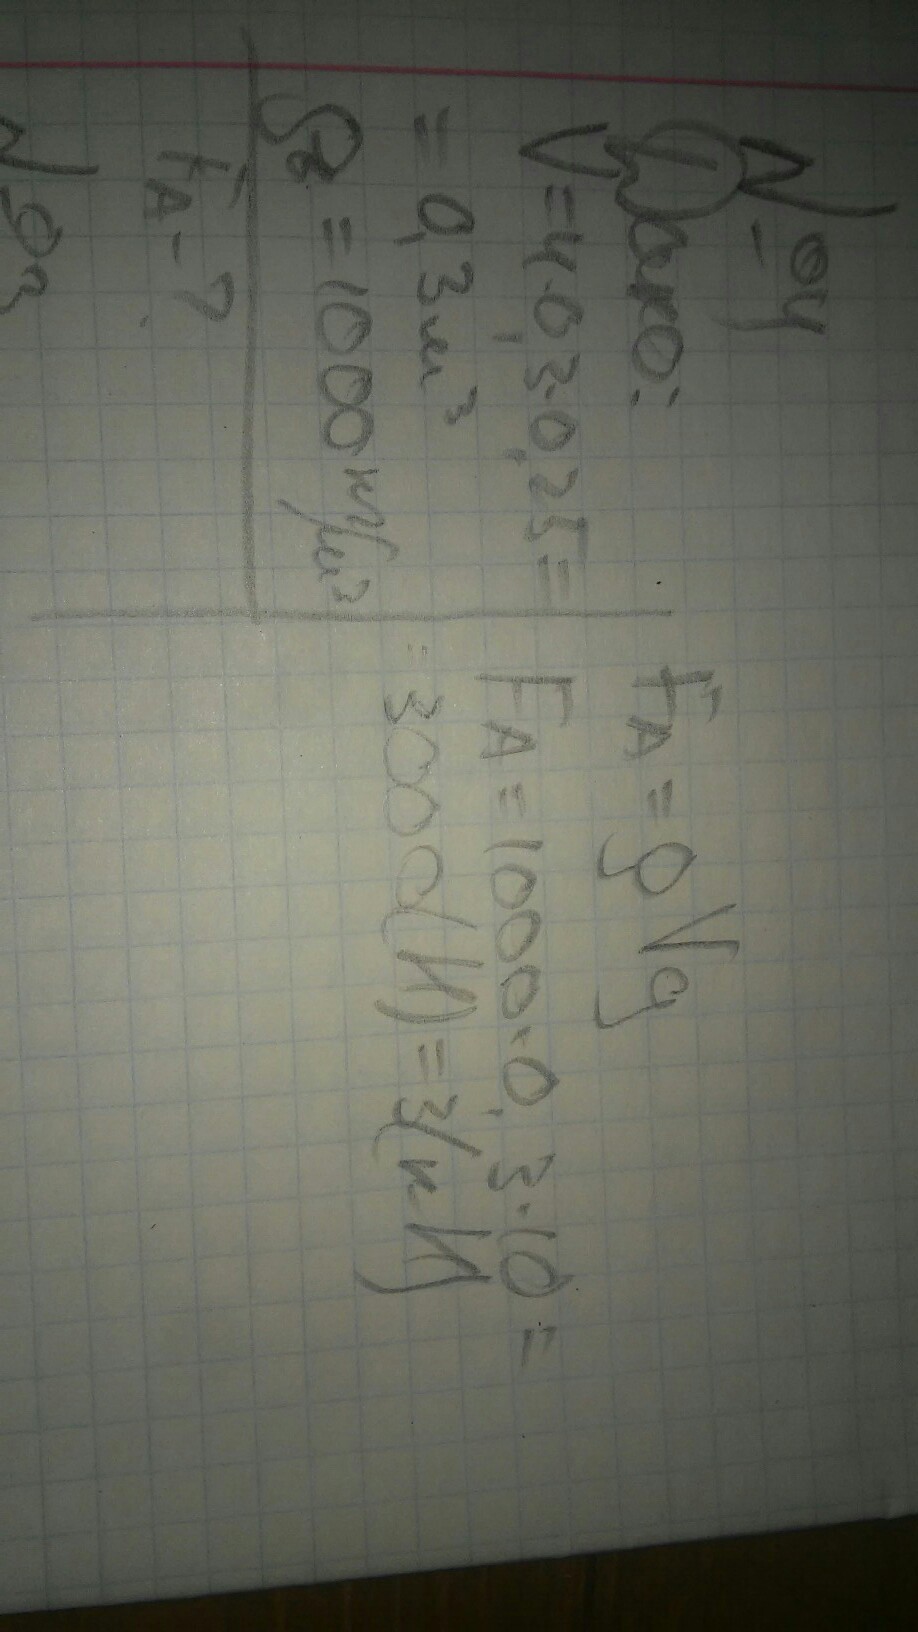 №4
Дано:
V=4·0,3·0,25=
=0,3м³
ρв=1000кг/м³
FА-?
FА=ρVg
FА=1000·0,3·10=
=3000(Н)=3(кН)